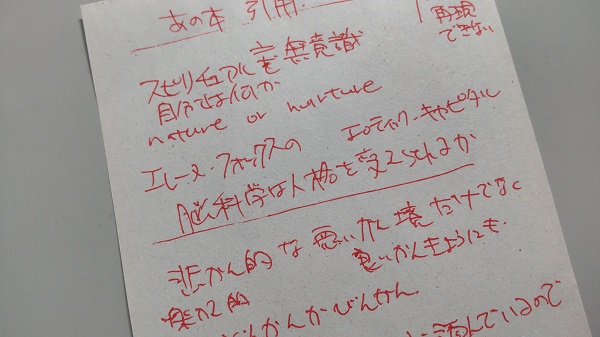 あの本 引用
再現
できない
スピリチュアル 無意識
自分とは何か
nature or nurture
エレーヌ・フォックスの エロティック・キャピタル
脳科学は人格を変えられるか
悲かん的な悪いかん境だけでなく
楽かん的 良いかんきょうにも
どんかんかびんかん
んでいるので